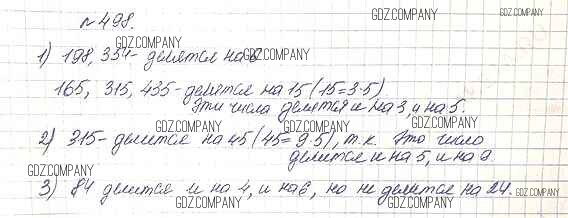 №498.
1) 198, 354 - делятся на 6
165, 315, 435 - делятся на 15 (15=3·5)
эти числа делятся и на 3, и на 5.
2) 315 - делится на 45 (45=9·5), т.к. это число
делится и на 5, и на 9.
3) 84 делится и на 4, и на 6, но не делится на 24.
GDZ.COMPANY
GDZ.COMPANY
GDZ.COMPANY
GDZ.COMPANY
GDZ.COMPANY
GDZ.COMPANY
GDZ.COMPANY
GDZ.COMPANY
GDZ.COMPANY
GDZ.COMPANY
GDZ.COMPANY
GDZ.COMPANY
GDZ.COMPANY